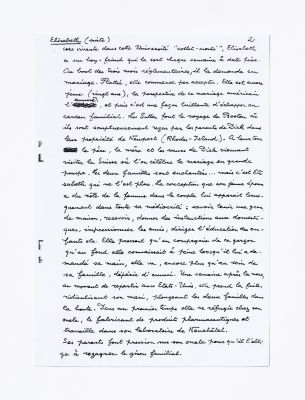 Elizabeth (suite) 2
vivante dans cette Université "collet-monté", Elizabeth
a un boy-friend qui la sort chaque semaine à date fixe.
Au bout des trois mois réglementaires, il la demande en
mariage. Flattée, elle commence par accepter. Elle est encore
jeune (vingt ans), la perspective de ce mariage américain
l'amuse, et puis c'est une façon brillante d'échapper au
carcan familial. Les font le voyage de Boston où
ils sont somptueusement reçus par les parents de Dick dans
leur propriété de Newport (Rhode-Island). A leur tour
le père, la mère et les sœurs de Dick viennent
visiter la Suisse où l'on célèbre le mariage en grande
pompe. Les deux familles sont enchantées... mais c'est Eli-
sabeth qui ne l'est plus. La conception que son jeune époux
a du rôle de la femme dans le couple lui apparaît brus-
quement dans toute sa médiocrité : savoir tenir une
maison, recevoir, donner des instructions aux domesti-
ques, impressionner les amis, diriger l'éducation des en-
fants etc. Elle pressent qu'en compagnie de ce garçon
qu'au fond elle connaissait à peine lorsqu'il lui a de-
mandé sa main, elle va, encore plus qu'au sein de
sa famille, dépérir d'ennui. Une semaine après la noce,
au moment de repartir aux Etats-Unis, elle prend la fuite,
ridiculisant son mari, plongeant les deux familles dans
la honte. Dans un premier temps elle se réfugie chez son
oncle, le fabricant de produits pharmaceutiques et
travaille dans son laboratoire de Neuchâtel.
Ses parents font pression sur son oncle pour qu'il l'obli-
ge à regagner le giron familial.